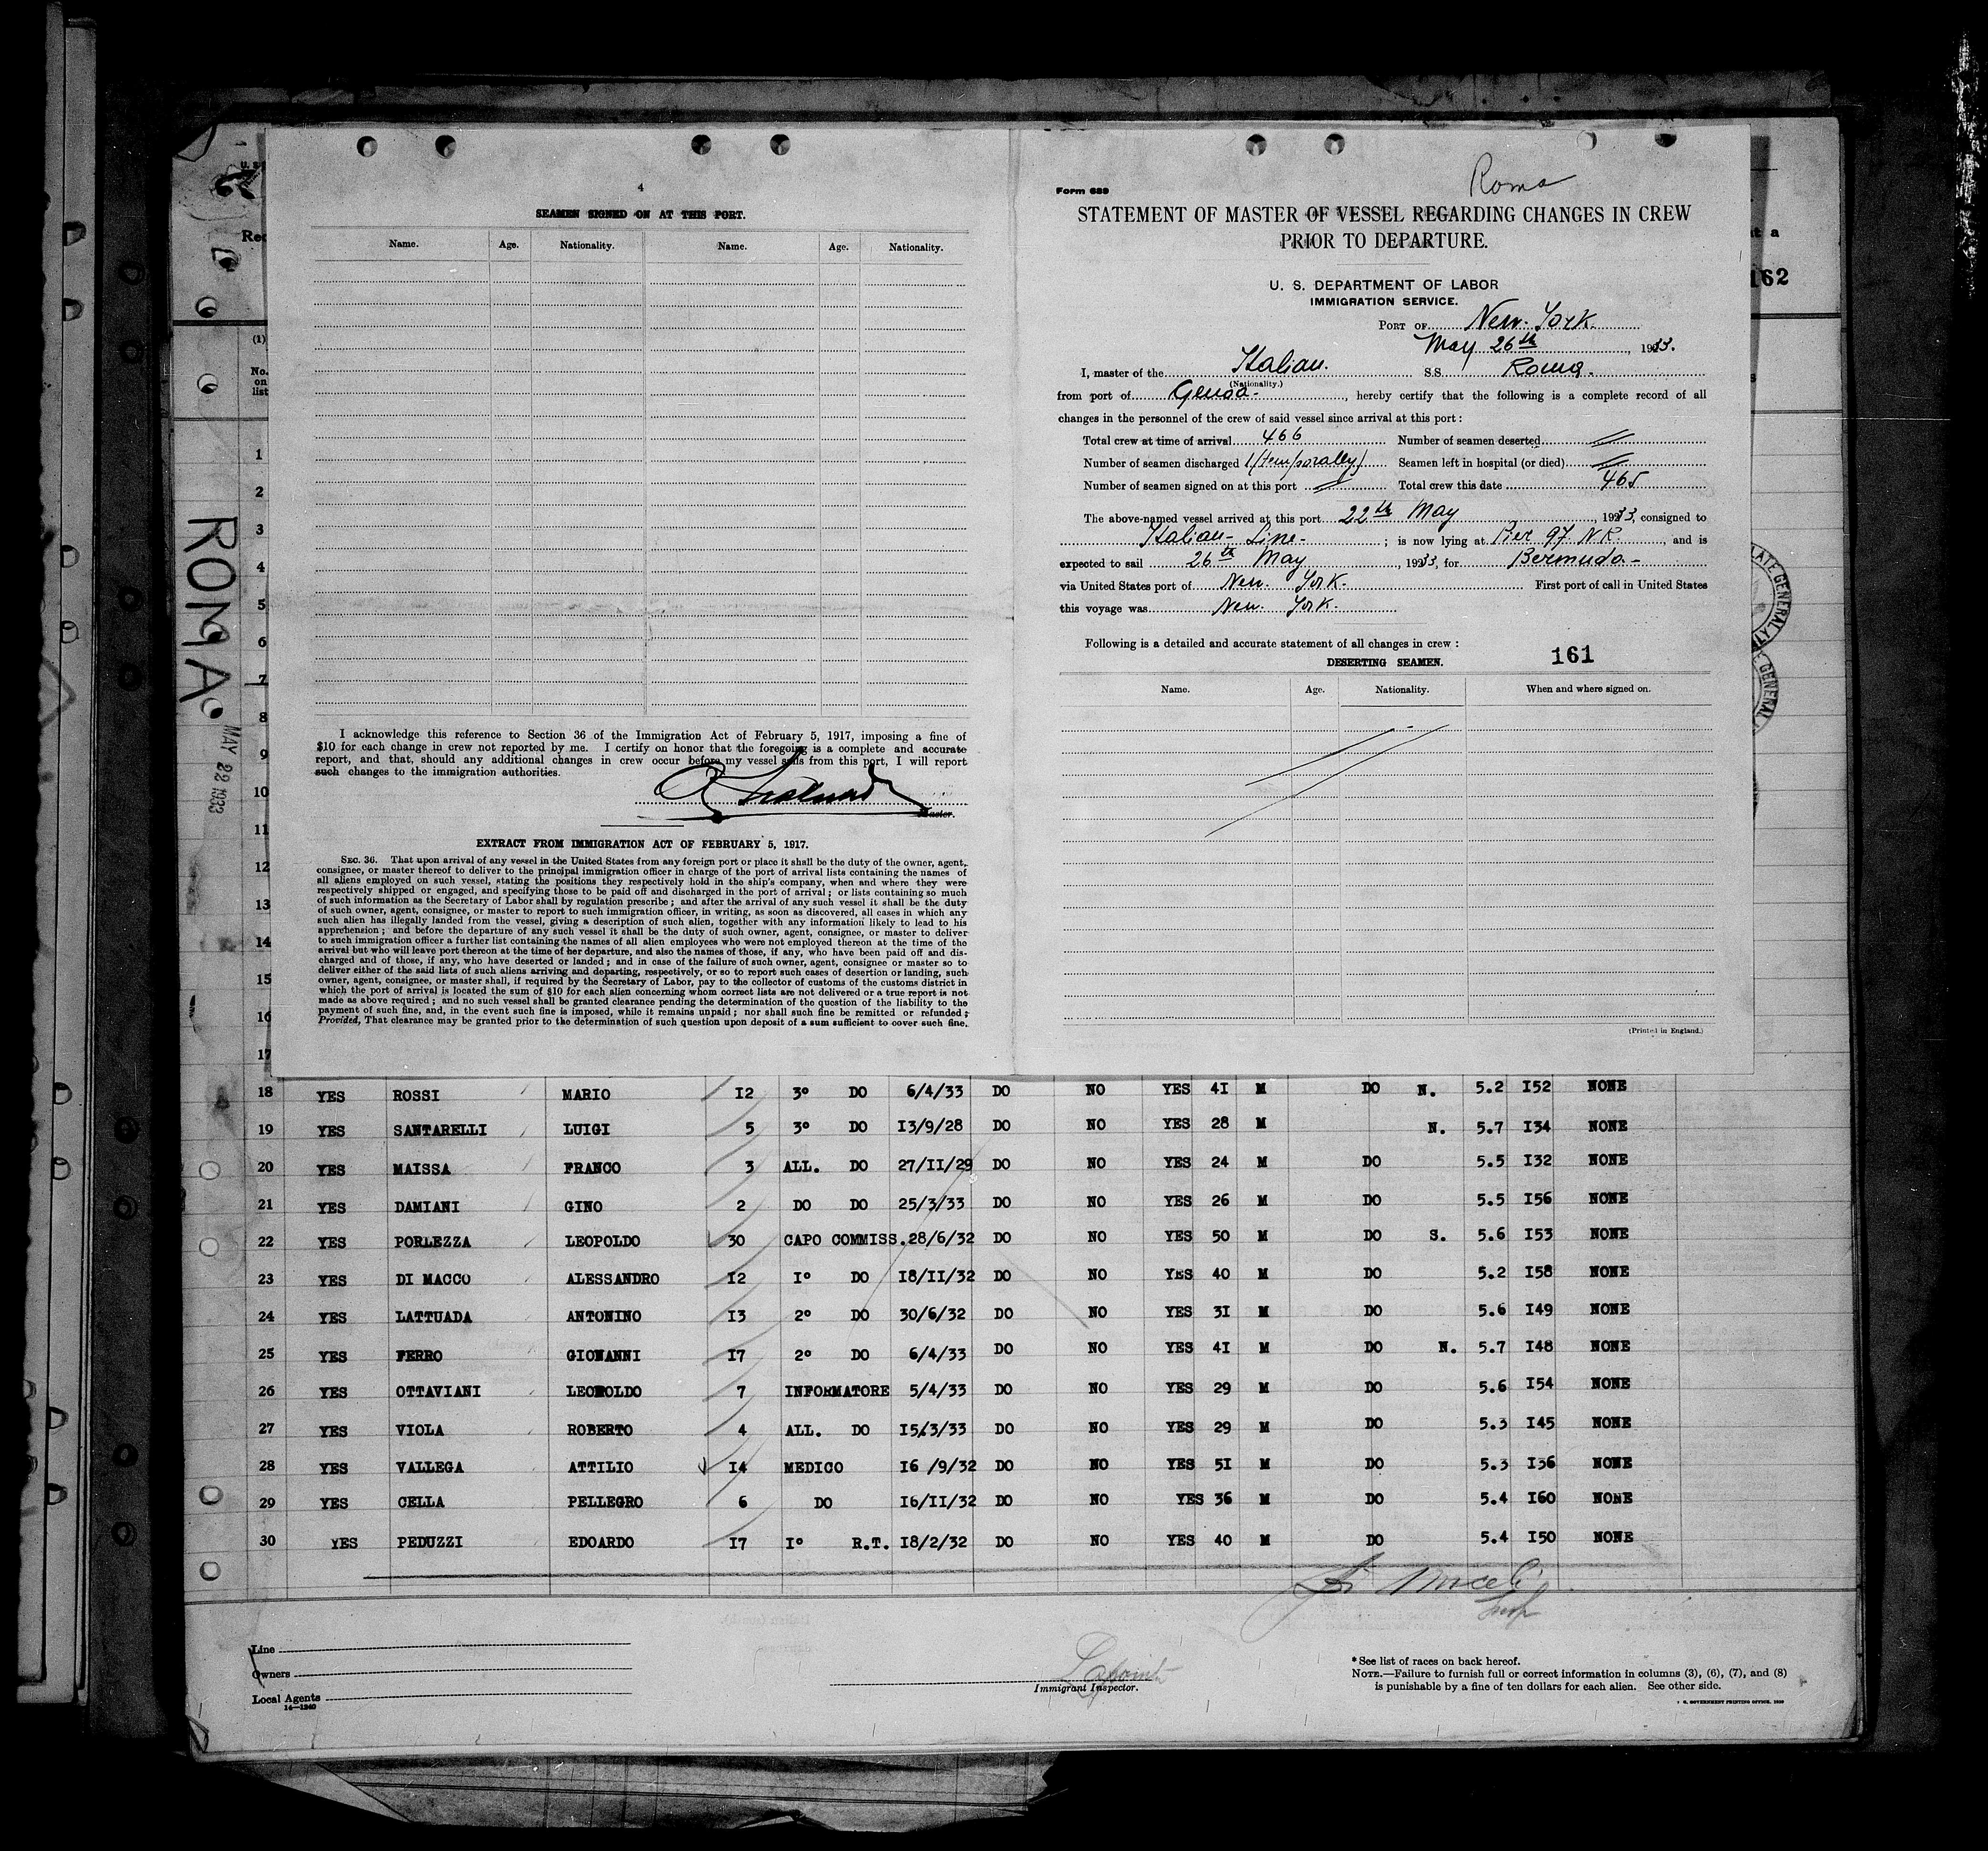 4
SEAMEN SIGNED ON AT THIS PORT.
Name. Age. Nationality. Name. Age. Nationality.
I acknowledge this reference to Section 36 of the Immigration Act of February 5, 1917, imposing a fine of
$10 for each change in crew not reported by me. I certify on honor that the foregoing is a complete and accurate
report, and that, should any additional changes in crew occur before my vessel sails from this port, I will report
such changes to the immigration authorities.
Master.
EXTRACT FROM IMMIGRATION ACT OF FEBRUARY 5, 1917.
SEC. 36. That upon arrival of any vessel in the United States from any foreign port or place it shall be the duty of the owner, agent,
consignee, or master thereof to deliver to the principal immigration officer in charge of the port of arrival lists containing the names of
all aliens employed on such vessel, stating the positions they respectively hold in the ship's company, when and where they were
respectively shipped or engaged, and specifying those to be paid off and discharged in the port of arrival; or lists containing so much
of such information as the Secretary of Labor shall by regulation prescribe; and after the arrival of any such vessel it shall be the duty
of such owner, agent, consignee, or master to report to such immigration officer, in writing, as soon as discovered, all cases in which any
such alien has illegally landed from the vessel, giving a description of such alien, together with any information likely to lead to his
apprehension; and before the departure of any such vessel it shall be the duty of such owner, agent, consignee, or master to deliver
to such immigration officer a further list containing the names of all alien employees who were not employed thereon at the time of the
arrival but who will leave port thereon at the time of her departure, and also the names of those, if any, who have been paid off and dis-
charged and of those, if any, who have deserted or landed; and in case of the failure of such owner, agent, consignee or master so to
deliver either of the said lists of such aliens arriving and departing, respectively, or so to report such cases of desertion or landing, such
owner, agent, consignee, or master shall, if required by the Secretary of Labor, pay to the collector of customs of the customs district in
which the port of arrival is located the sum of $10 for each alien concerning whom correct lists are not delivered or a true report is not
made as above required; and no such vessel shall be granted clearance pending the determination of the question of the liability to the
payment of such fine, and, in the event such fine is imposed, while it remains unpaid; nor shall such fine be remitted or refunded;
Provided, That clearance may be granted prior to the determination of such question upon deposit of a sum sufficient to cover such fine.
Form 689
Roma
STATEMENT OF MASTER OF VESSEL REGARDING CHANGES IN CREW
PRIOR TO DEPARTURE.
U. S. DEPARTMENT OF LABOR
IMMIGRATION SERVICE.
PORT OF New York
May 26th, 1933.
I, master of the Italian. S.S. Roma.
(Nationality.)
from port of Genoa, hereby certify that the following is a complete record of all
changes in the personnel of the crew of said vessel since arrival at this port:
Total crew at time of arrival 466 Number of seamen deserted
Number of seamen discharged 1 (temporally) Seamen left in hospital (or died)
Number of seamen signed on at this port Total crew this date 465
The above-named vessel arrived at this port 22th May, 1933, consigned to
Italian-Line-; is now lying at Pier 97 N.R., and is
expected to sail 26th May, 1933, for Bermuda-
via United States port of New York. First port of call in United States
this voyage was New York.
Following is a detailed and accurate statement of all changes in crew:
DESERTING SEAMEN. 161
Name. Age. Nationality. When and where signed on.
(Printed in England.)
162
ROMA
MAY 22 1933
(1)
No.
on
list
1
2
3
4
5
6
7
8
9
10
11
12
13
14
15
16
17
18 YES ROSSI MARIO I2 3° DO 6/4/33 DO NO YES 4I M DO N. 5.2 I52 NONE
19 YES SANTARELLI LUIGI 5 3° DO I3/9/28 DO NO YES 28 M N. 5.7 I34 NONE
20 YES MAISSA FRANCO 3 ALL. DO 27/II/29 DO NO YES 24 M DO 5.5 I32 NONE
21 YES DAMIANI GINO 2 DO DO 25/3/33 DO NO YES 26 M DO 5.5 I56 NONE
22 YES PORLEZZA LEOPOLDO 30 CAPO COMMISS. 28/6/32 DO NO YES 50 M DO S. 5.6 I53 NONE
23 YES DI MACCO ALESSANDRO I2 I° DO I8/II/32 DO NO YES 40 M DO 5.2 I58 NONE
24 YES LATTUADA ANTONINO I3 2° DO 30/6/32 DO NO YES 3I M DO 5.6 I49 NONE
25 YES FERRO GIOWANNI I7 2° DO 6/4/33 DO NO YES 4I M DO N. 5.7 I48 NONE
26 YES OTTAVIANI LEOPOLDO 7 INFORMATORE 5/4/33 DO NO YES 29 M DO 5.6 I54 NONE
27 YES VIOLA ROBERTO 4 ALL. DO I5/3/33 DO NO YES 29 M DO 5.3 I45 NONE
28 YES VALLEGA ATTILIO I4 MEDICO I6 /9/32 DO NO YES 5I M DO 5.3 I36 NONE
29 YES CELLA PELLEGRO 6 DO I6/II/32 DO NO YES 36 M DO 5.4 I60 NONE
30 YES PEDUZZI EDOARDO I7 I° R.T. I8/2/32 DO NO YES 40 M DO 5.4 I50 NONE
Line
Owners
Local Agents
14—1240
Immigrant Inspector.
*See list of races on back hereof.
NOTE.—Failure to furnish full or correct information in columns (3), (6), (7), and (8)
is punishable by a fine of ten dollars for each alien. See other side.